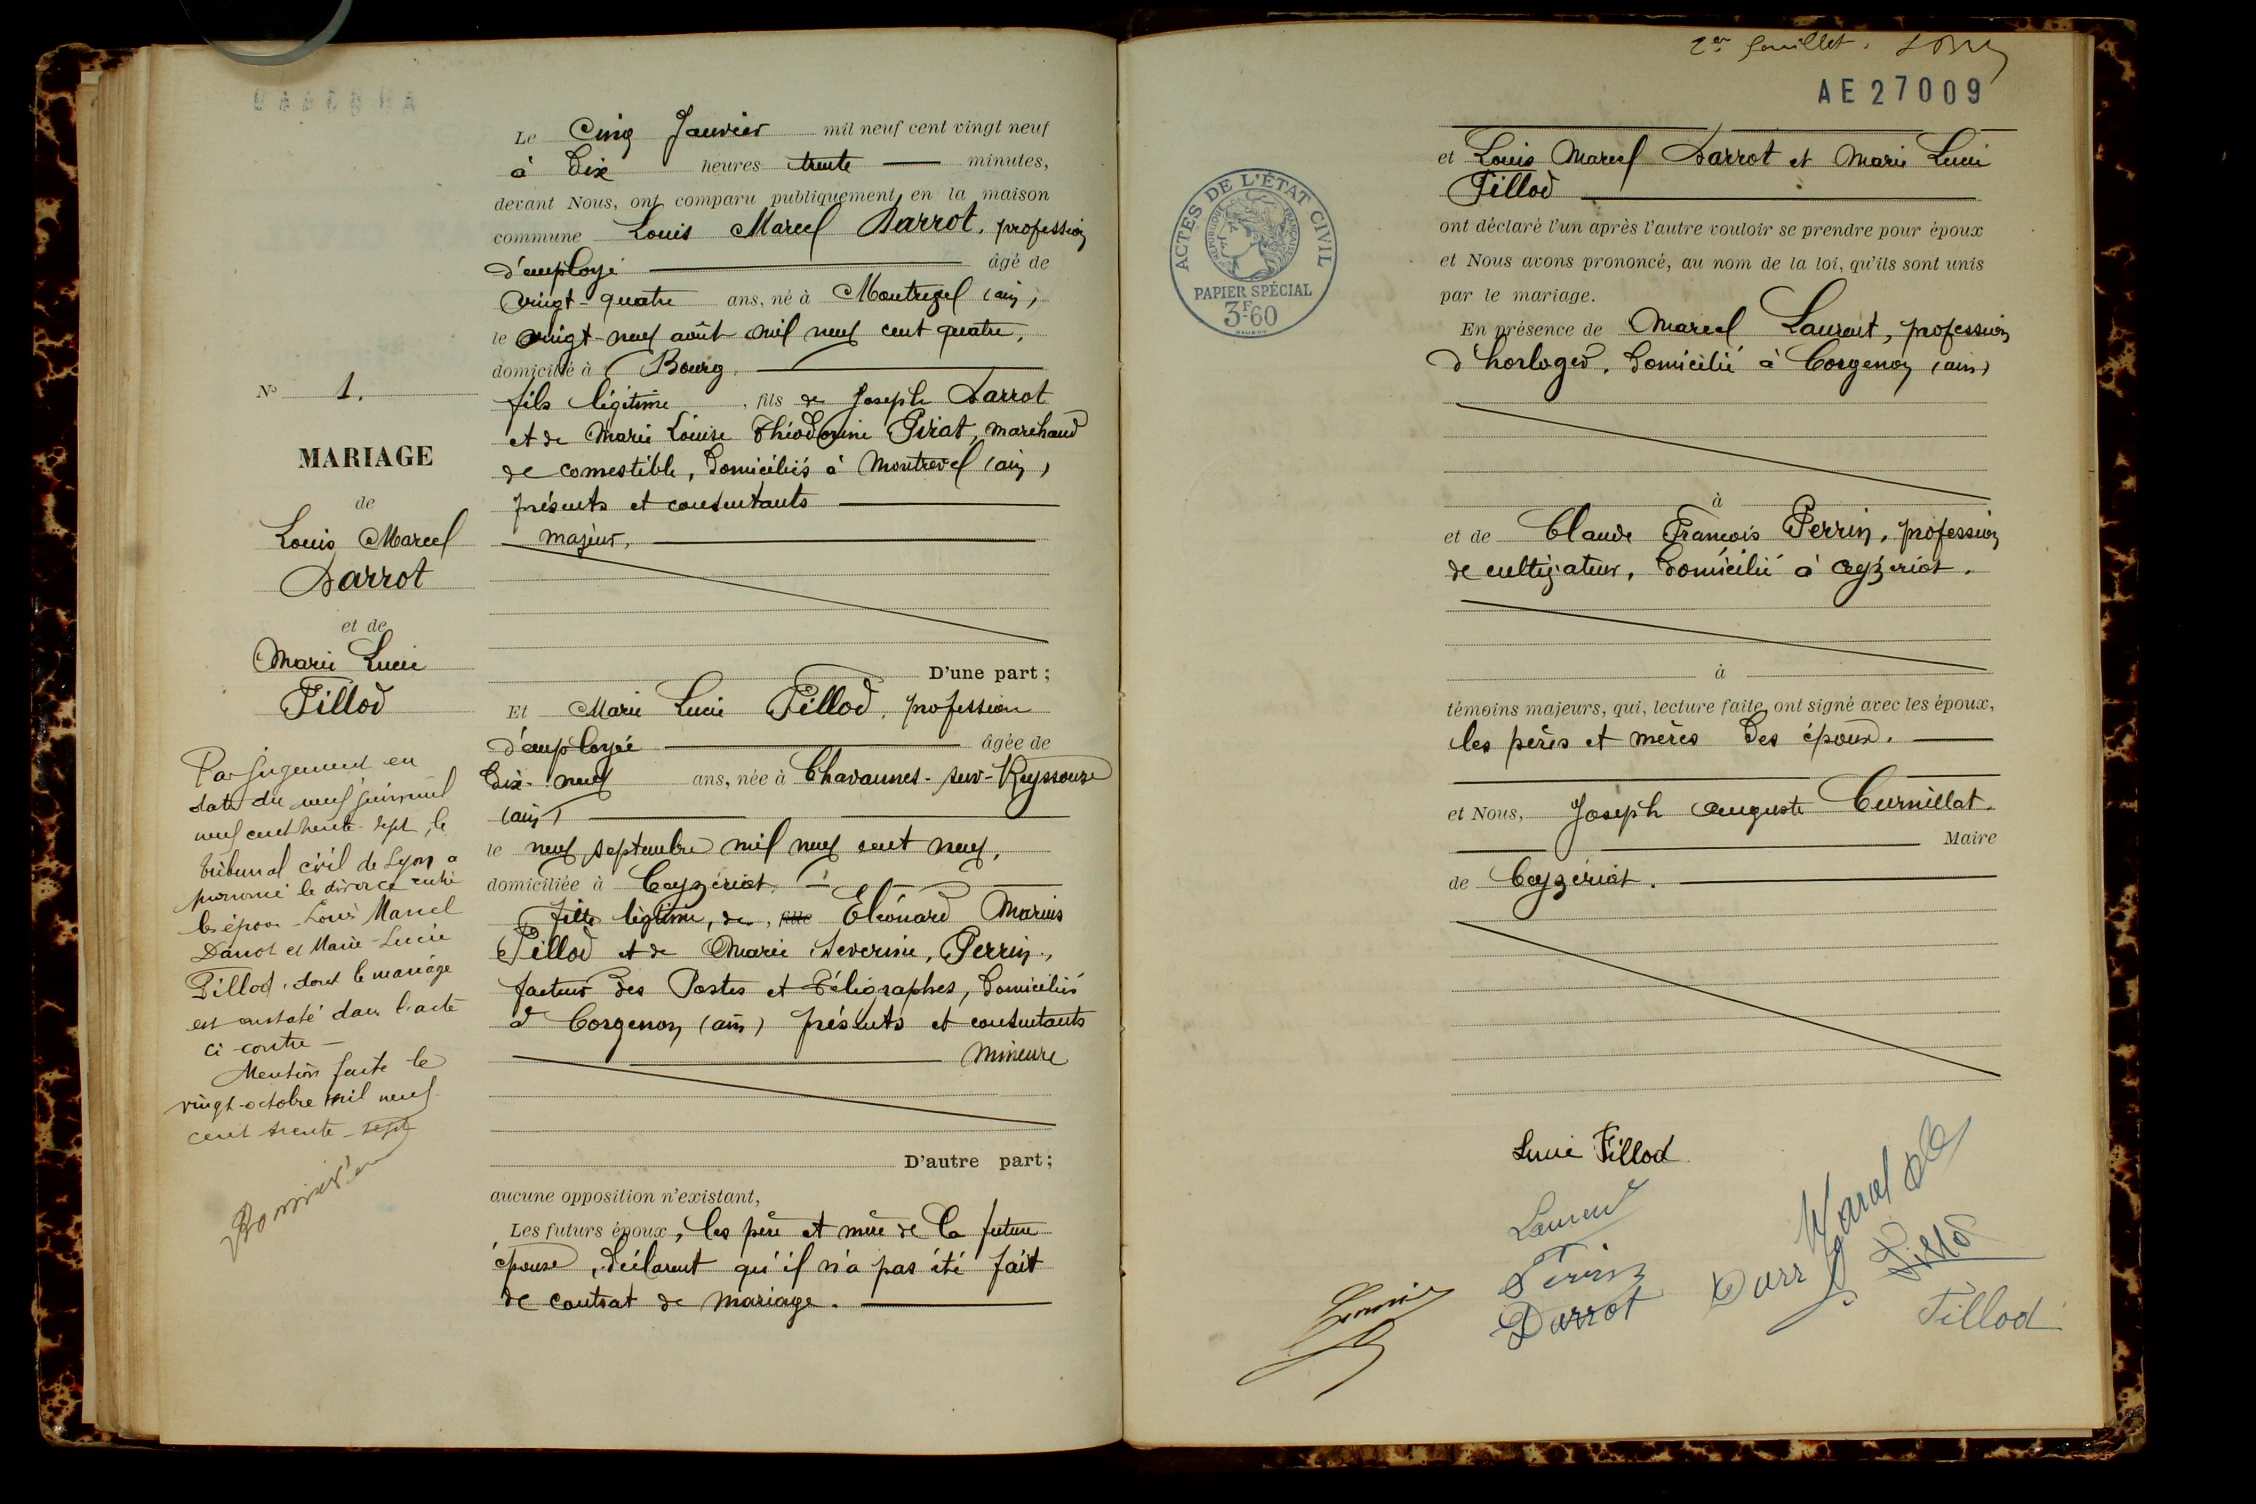 Le Cinq Janvier mil neuf cent vingt neuf
à Dix heures trente minutes,
devant Nous, ont comparu publiquement en la maison
commune Louis Marcel Darrot, profession
d'employé âgé de
vingt-quatre ans, né à Montrevel (ain)
le vingt-neuf août mil neuf cent quatre,
domicilié à Bourg.
fils légitime, fils de Joseph Darrot
et de Marie Louise Théodorine Pirat, marchand
de comestible, Domiciliés à Montrevel (ain)
présents et consentants
majeur,
D'une part ;
Et Marie Lucie Pillod, profession
d'employée âgée de
Dix-neuf ans, née à Chavannes-sur-Reyssouze
(ain)
le neuf septembre mil neuf cent neuf,
domiciliée à Ceyzériat,
fille légitime, de, fille Eléonard Marius
Pillod et de Marie Severine, Perrin,
facteur des Postes et Télégraphes, Domiciliés
à Corgenon (ain) présents et consentants
mineure
D'autre part ;
aucune opposition n'existant,
Les futurs époux, les père et mère de la future
épouse, déclarent qu'il n'a pas été fait
de contrat de mariage.
N° 1.
MARIAGE
de
Louis Marcel
Darrot
et de
Marie Lucie
Pillod
Par jugement en
date du neuf juin mil
neuf cent trente-sept, le
tribunal civil de Lyon a
prononcé le divorce entre
les époux Louis Marcel
Darrot et Marie-Lucie
Pillod, dont le mariage
est constaté dans l'acte
ci-contre-
Mention faite le
vingt-octobre mil neuf
cent trente-sept
2er feuillet.
AE27009
ACTES DE L'ÉTAT CIVIL
RÉPUBLIQUE FRANÇAISE
PAPIER SPÉCIAL
3F60
et Louis Marcel Darrot et Marie Lucie
Pillod
ont déclaré l'un après l'autre vouloir se prendre pour époux
et Nous avons prononcé, au nom de la loi, qu'ils sont unis
par le mariage.
En présence de Marcel Laurent, profession
d'horloger, Domicilié à Corgenon (ain)
à
et de Claude François Perrin, profession
de cultivateur, Domicilié à Ceyzériat.
à
témoins majeurs, qui, lecture faite, ont signé avec les époux,
les pères et mères des époux.
et Nous, Joseph Auguste Curnillat.
Maire
de Ceyzériat.
Lucie Pillod
Laurent
Perrin
Darrot
Pillod
Pillod